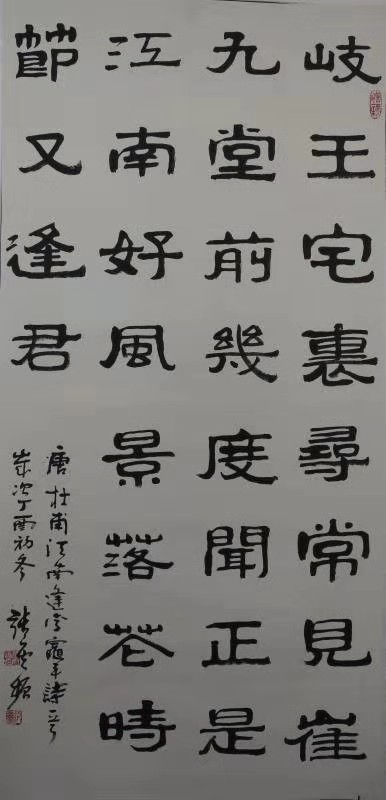 岐王宅裏尋常見崔
九堂前幾度聞正是
江南好風景落花時
節又逢君
唐杜甫江南逢李龜年詩一首
歲次丁酉初冬